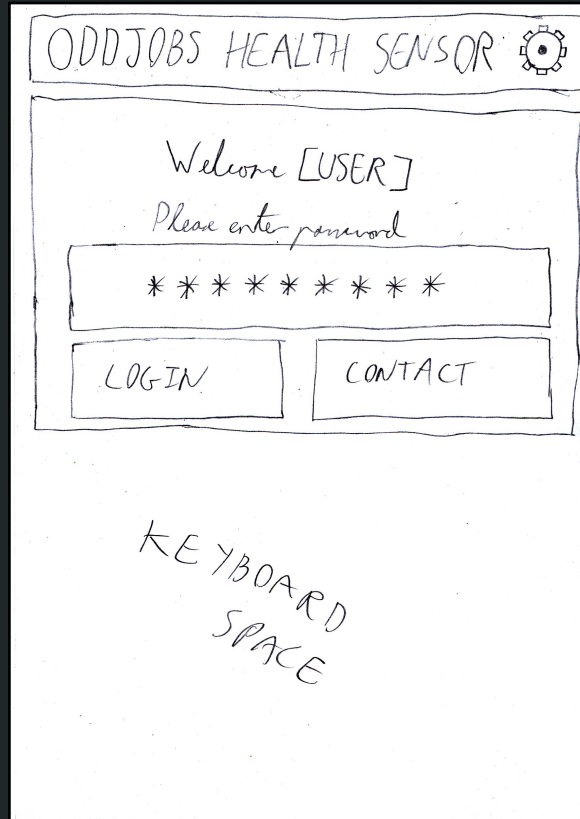 ODDJOBS HEALTH SENSOR
Welcome [USER]
Please enter password
*********
LOGIN
CONTACT
KEYBOARD
SPACE